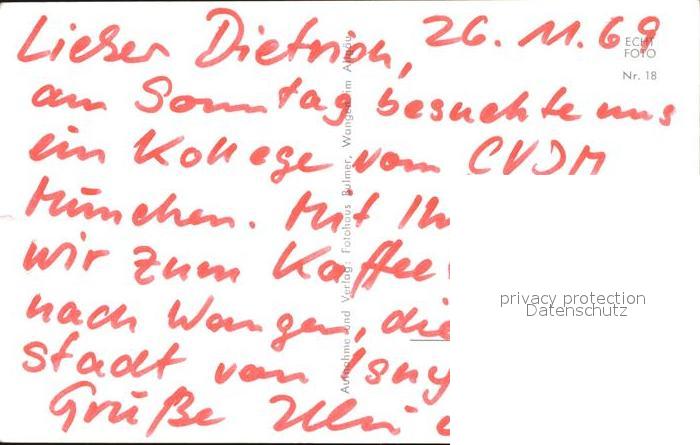 Lieber Dietrich, 26.11.69
am Sonntag besuchte uns
ein Kollege vom CVJM
München. Mit Ih
wir zum Kaffee
nach Wangen, die
Stadt von Isny
Grüße Ulli
ECHT
FOTO
Nr. 18
Aufnahme und Verlag: Fotohaus Bulmer, Wangen im Allgäu
privacy protection
Datenschutz